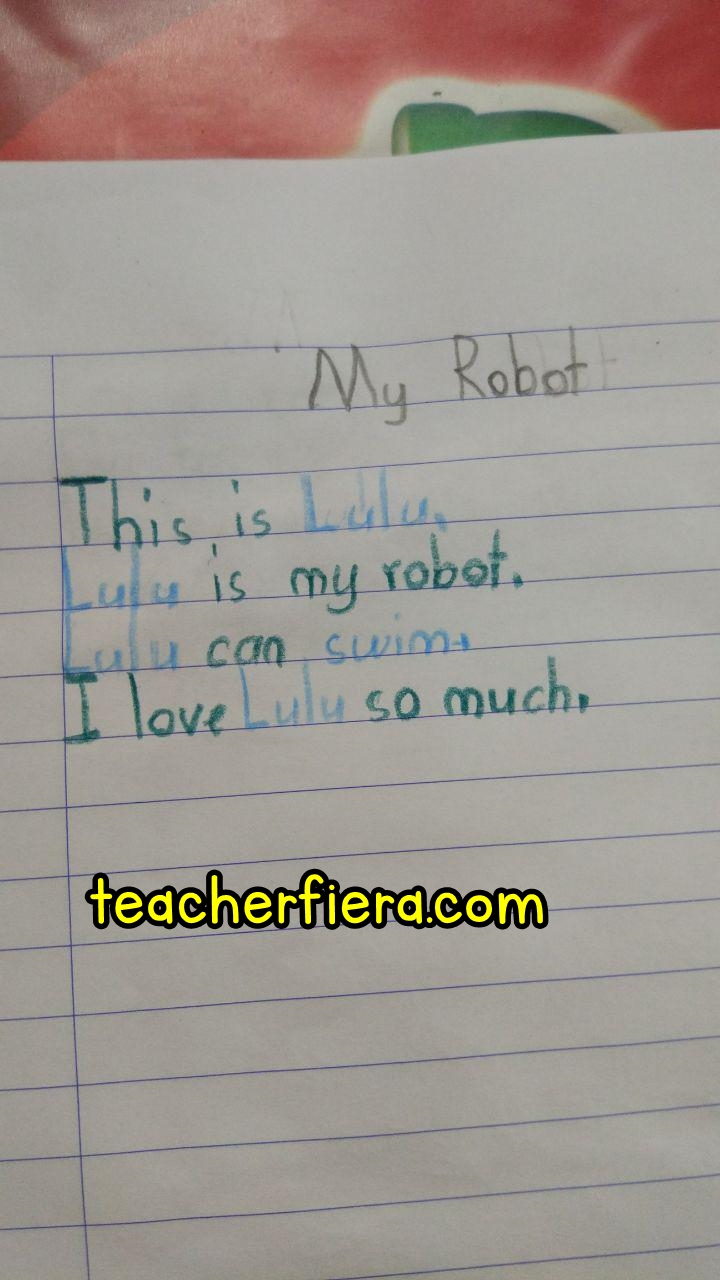 My Robot
This is Lulu.
Lulu is my robot.
Lulu can swim.
I love Lulu so much.
teacherfiera.com